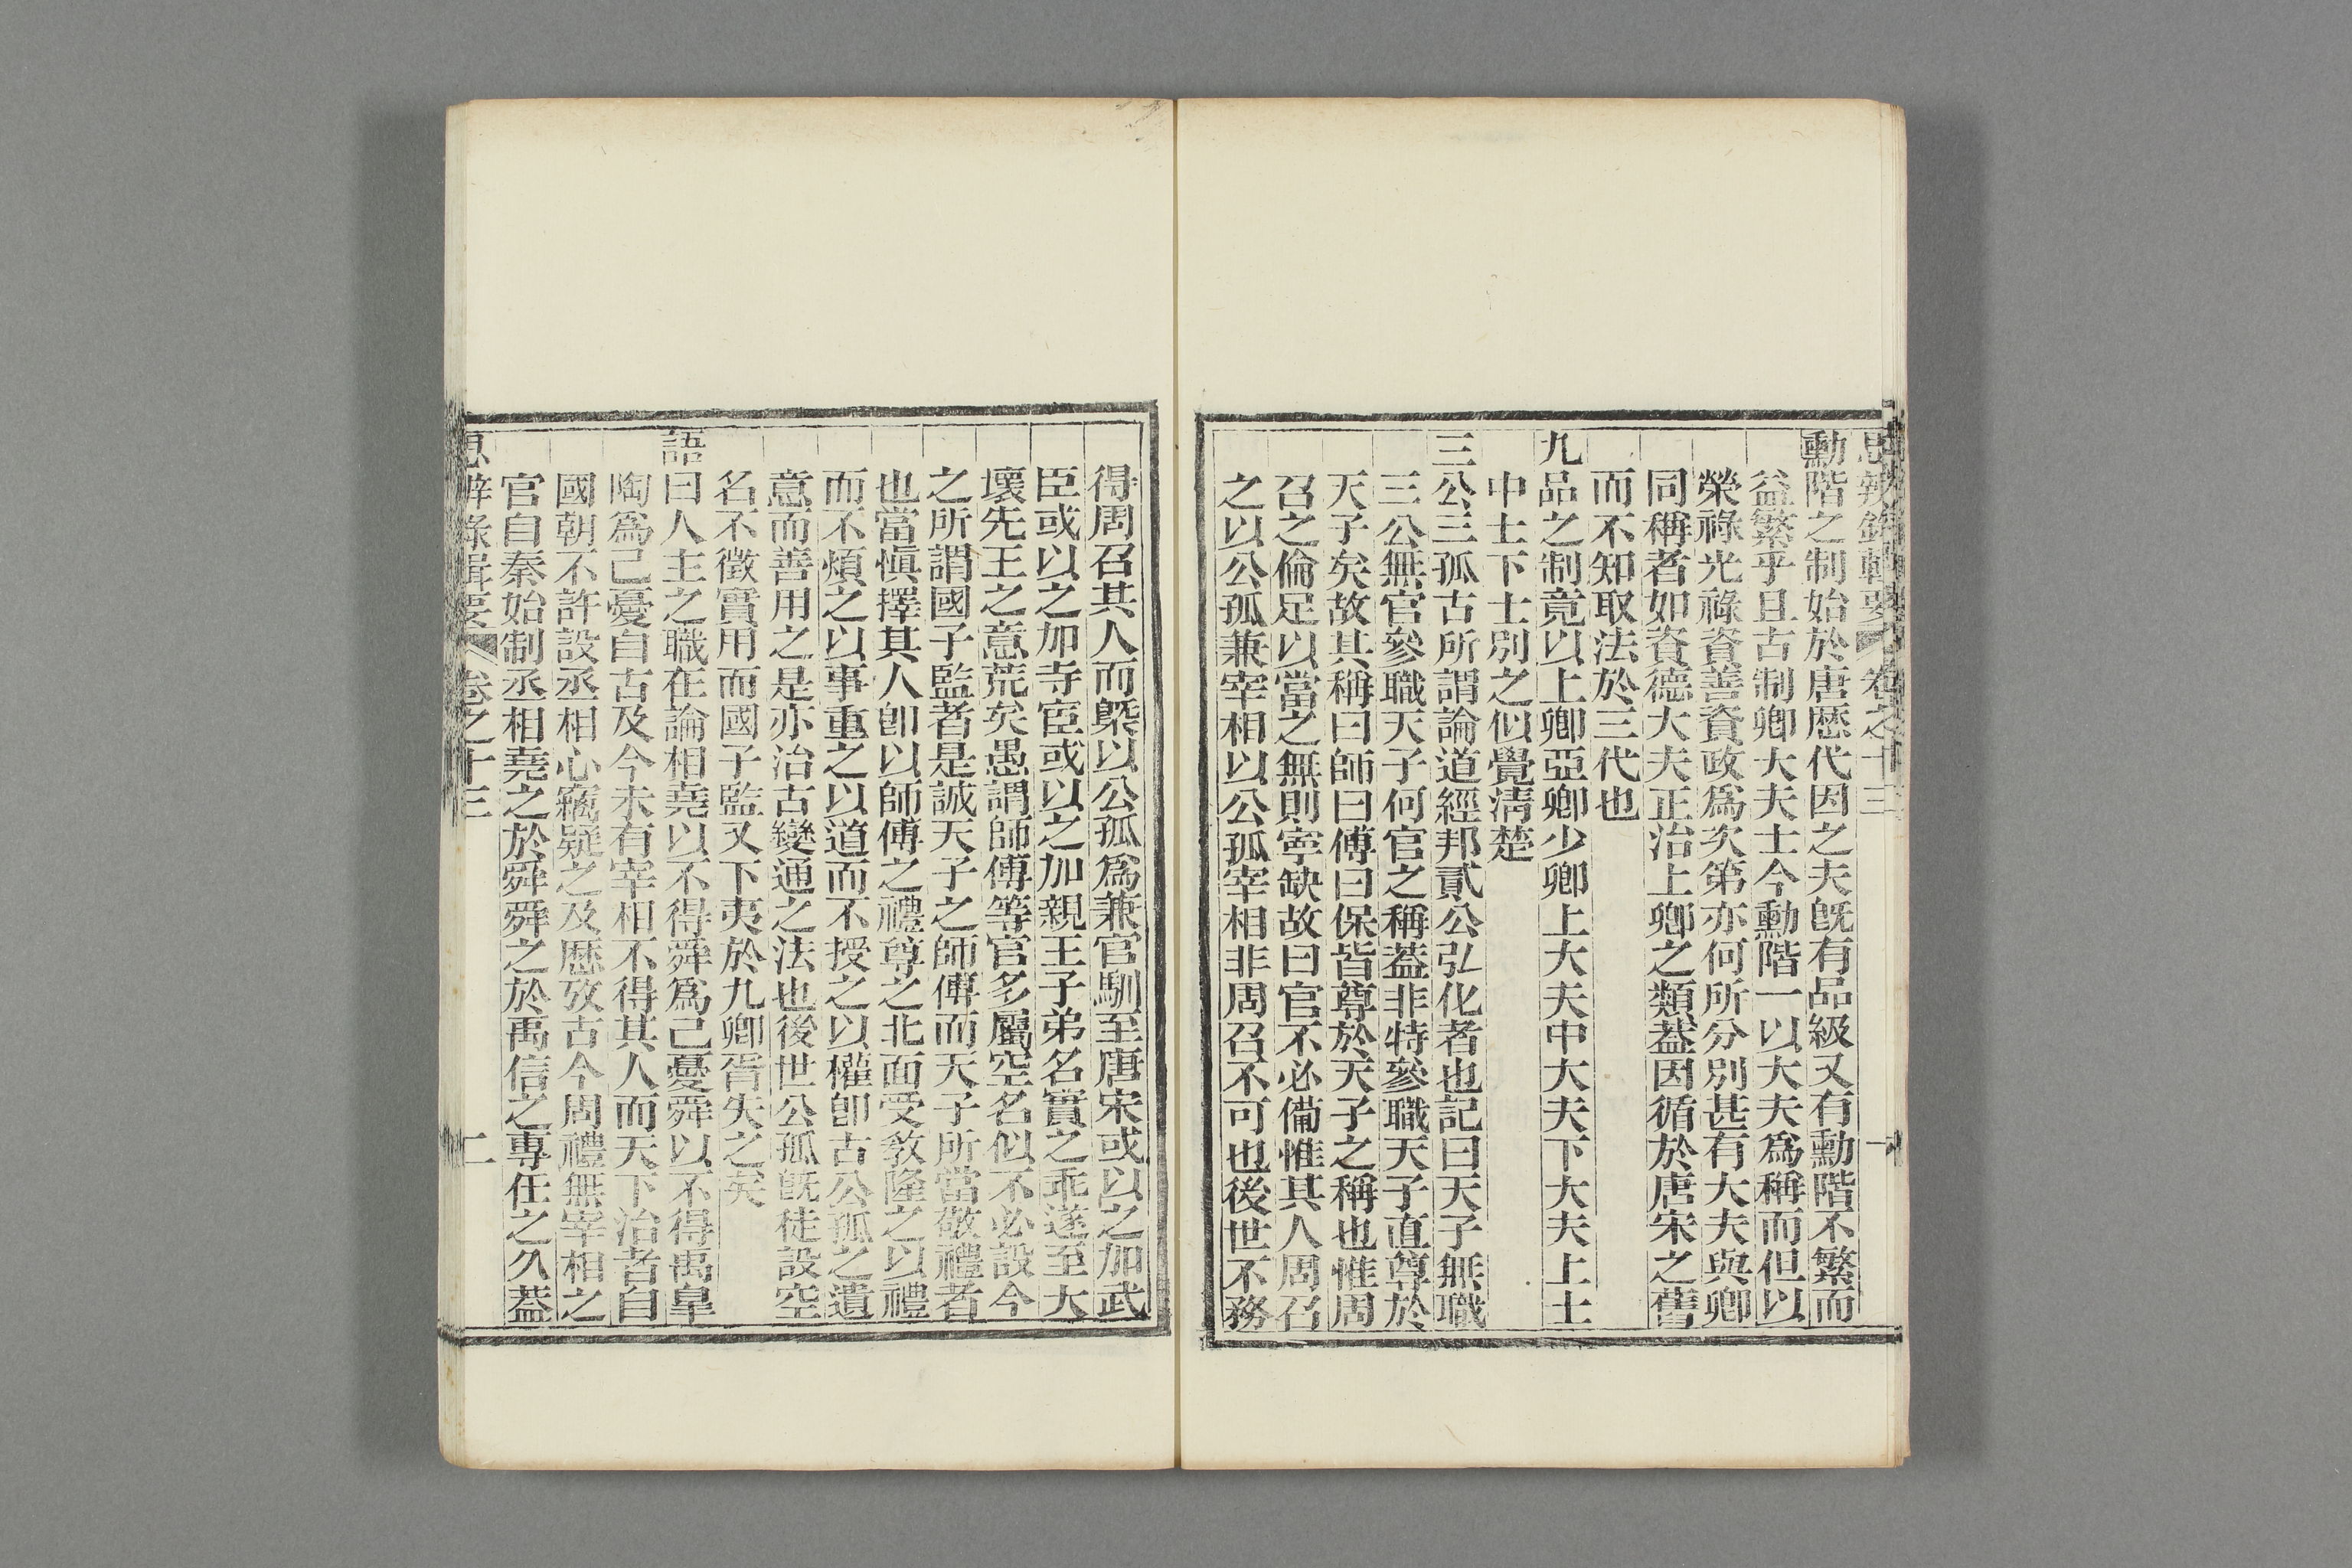 思辨錄輯要 卷之十三 一
勳階之制始於唐歷代因之夫旣有品級又有勳階不繁而
益繁乎且古制卿大夫士今勳階一以大夫爲稱而但以
榮祿光祿資善資政爲次第亦何所分別甚有大夫與卿
同稱者如資德大夫正治上卿之類葢因循於唐宋之舊
而不知取法於三代也
九品之制竟以上卿亞卿少卿上大夫中大夫下大夫上士
中士下士別之似覺淸楚
三公三孤古所謂論道經邦貳公弘化者也記曰天子無職
三公無官參職天子何官之稱葢非特參職天子直尊於
天子矣故其稱曰師曰傅曰保皆尊於天子之稱也惟周
召之倫足以當之無則寜缺故曰官不必備惟其人周召
之以公孤兼宰相以公孤宰相非周召不可也後世不務
得周召其人而槩以公孤爲兼官馴至唐宋或以之加武
臣或以之加寺宦或以之加親王子弟名實之乖遂至大
壞先王之意荒矣愚謂師傅等官多屬空名似不必設今
之所謂國子監者是誠天子之師傅而天子所當敬禮者
也當愼擇其人卽以師傅之禮尊之北面受敎隆之以禮
而不煩之以事重之以道而不授之以權卽古公孤之遺
意而善用之是亦治古變通之法也後世公孤旣徒設空
名不徵實用而國子監又下夷於九卿胥失之矣
語曰人主之職在論相堯以不得舜爲己憂舜以不得禹臯
陶爲己憂自古及今未有宰相不得其人而天下治者自
國朝不許設丞相心竊疑之及歷攷古今周禮無宰相之
官自秦始制丞相堯之於舜舜之於禹信之專任之久葢
思辨錄輯要 卷之十三 二